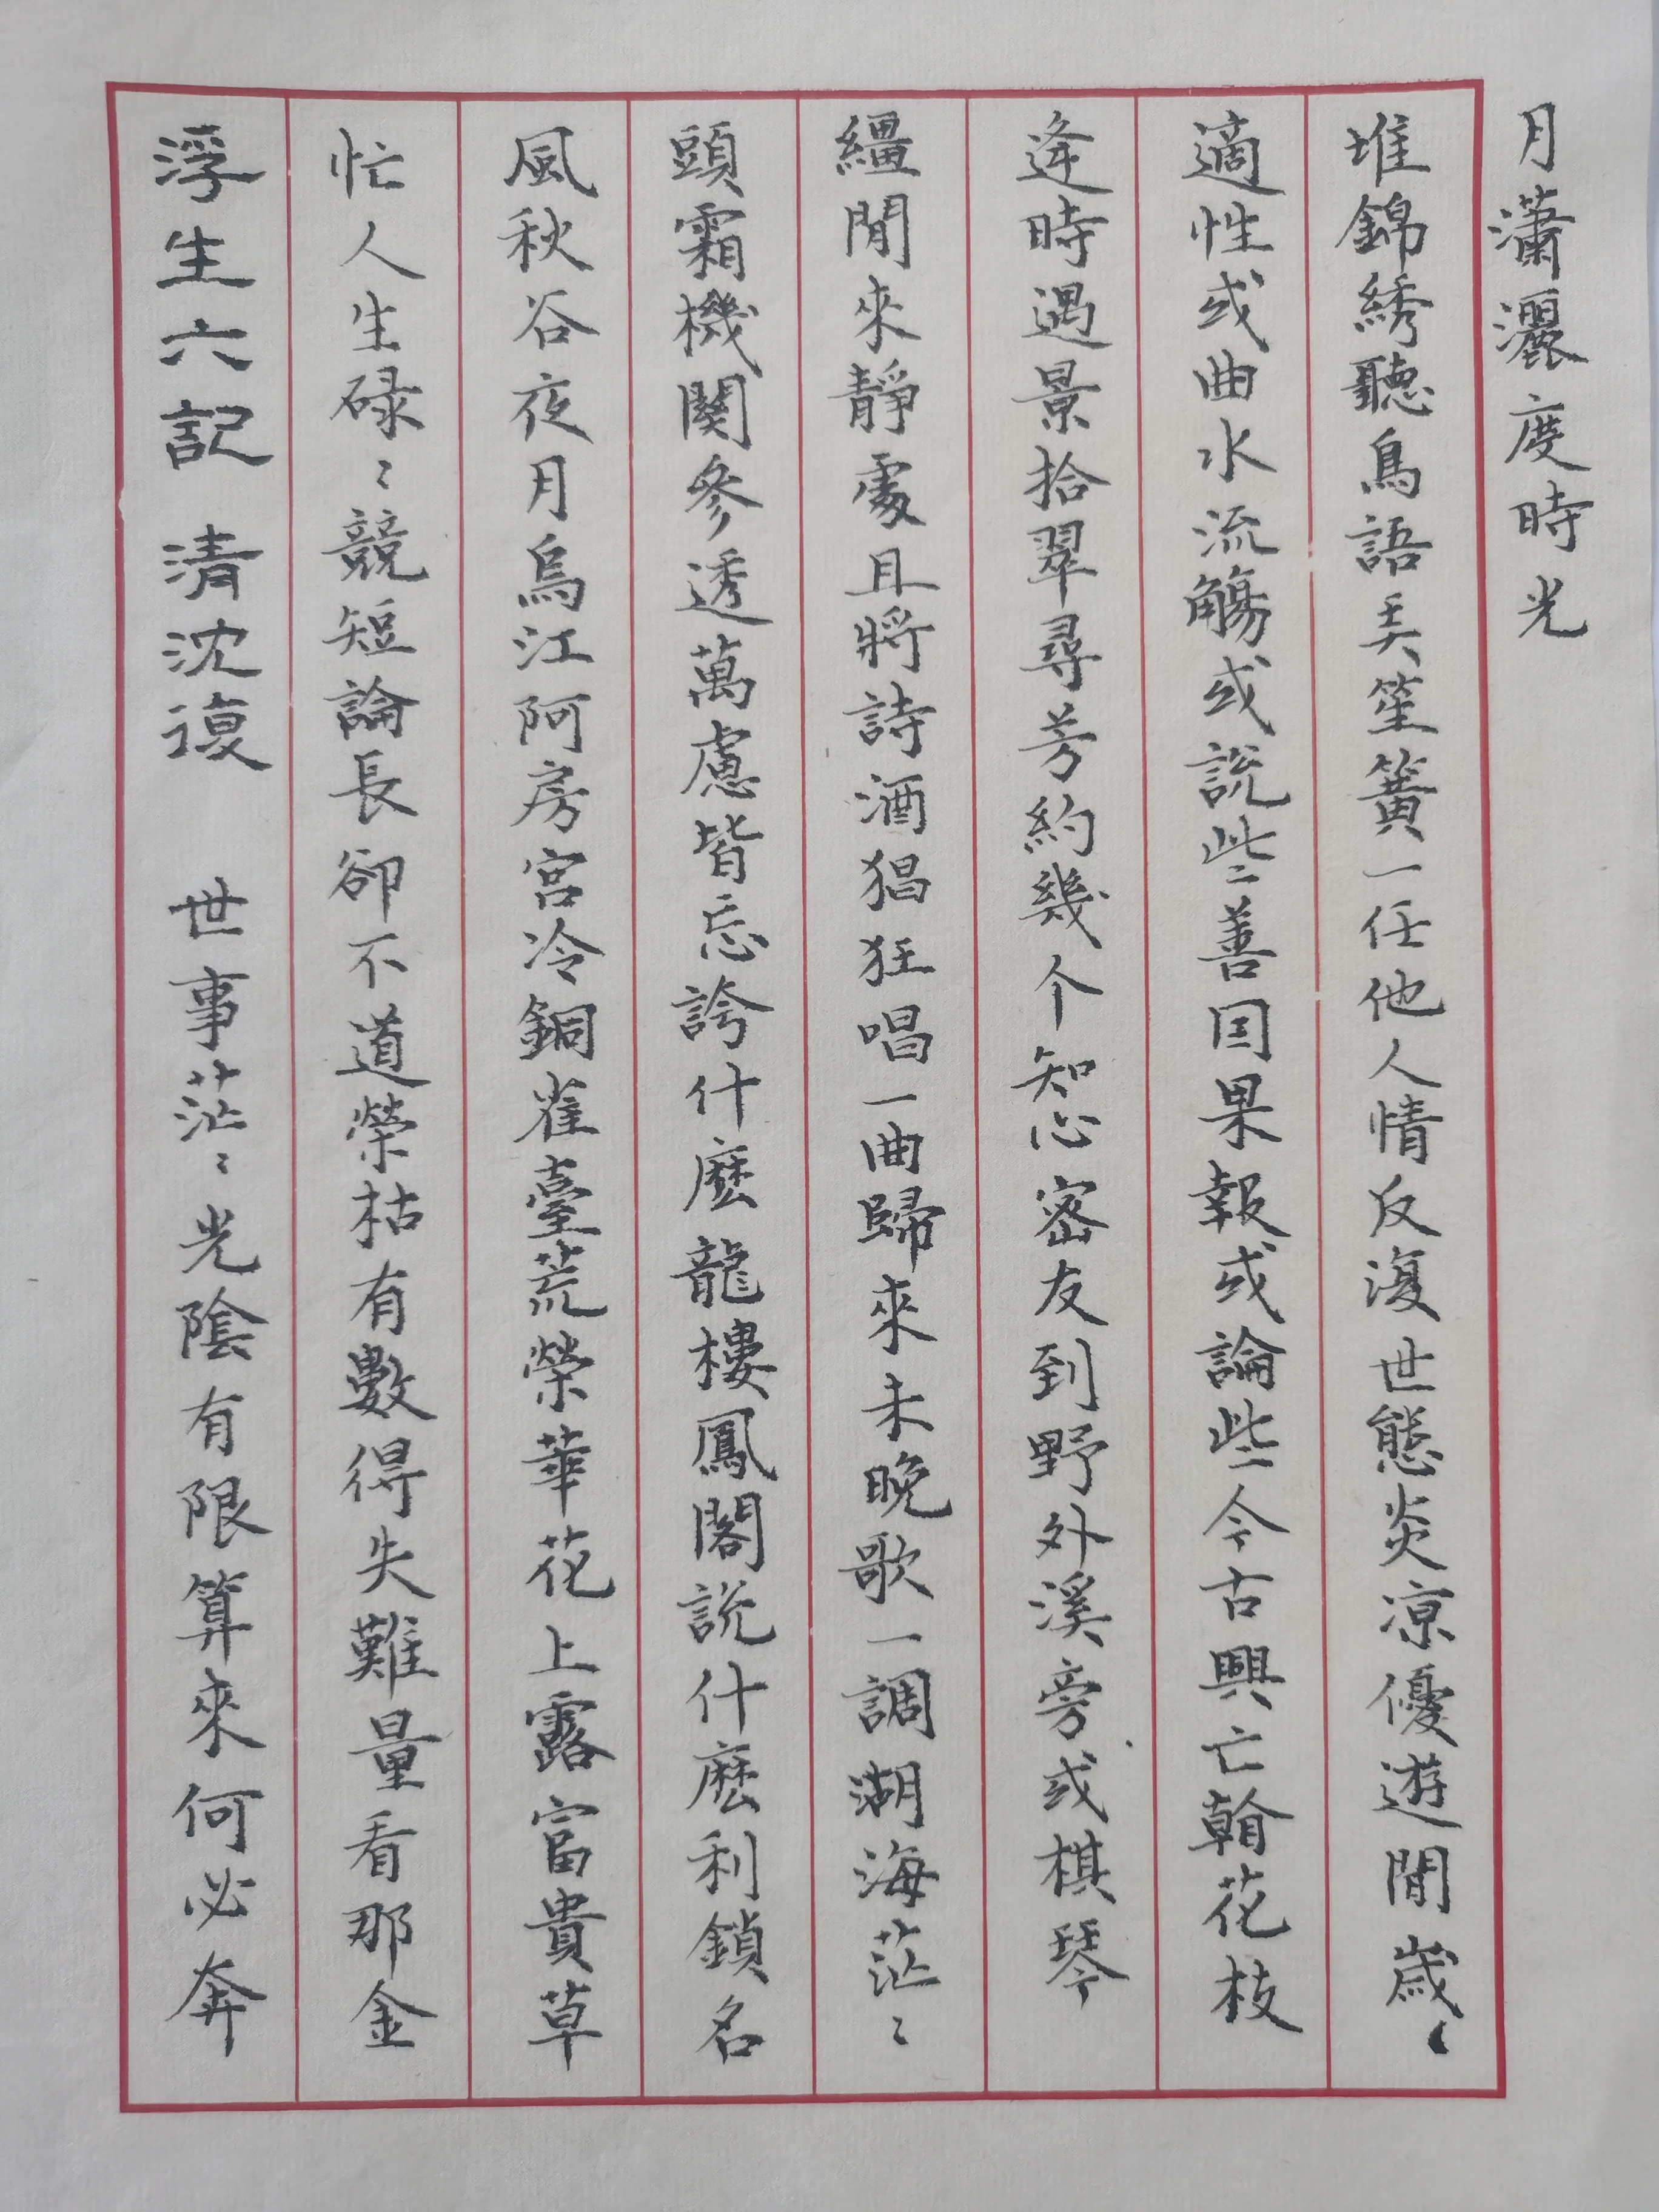 浮生六記 清沈復 世事茫〻光陰有限算來何必奔
忙人生碌〻競短論長卻不道榮枯有數得失難量看那金
風秋谷夜月烏江阿房宮冷銅雀臺荒榮華花上露富貴草
頭霜機關參透萬慮皆忘誇什麼龍樓鳳閣説什麼利鎖名
繮閒來靜處且將詩酒猖狂唱一曲歸來未晚歌一調湖海茫〻
逢時遇景拾翠尋芳約幾个知心密友到野外溪旁或棋琴
適性或曲水流觴或説些善因果報或論些今古興亡翰花枝
堆錦綉聽鳥語美笙簧一任他人情反復世態炎凉優遊閒歲〻
月瀟灑度時光